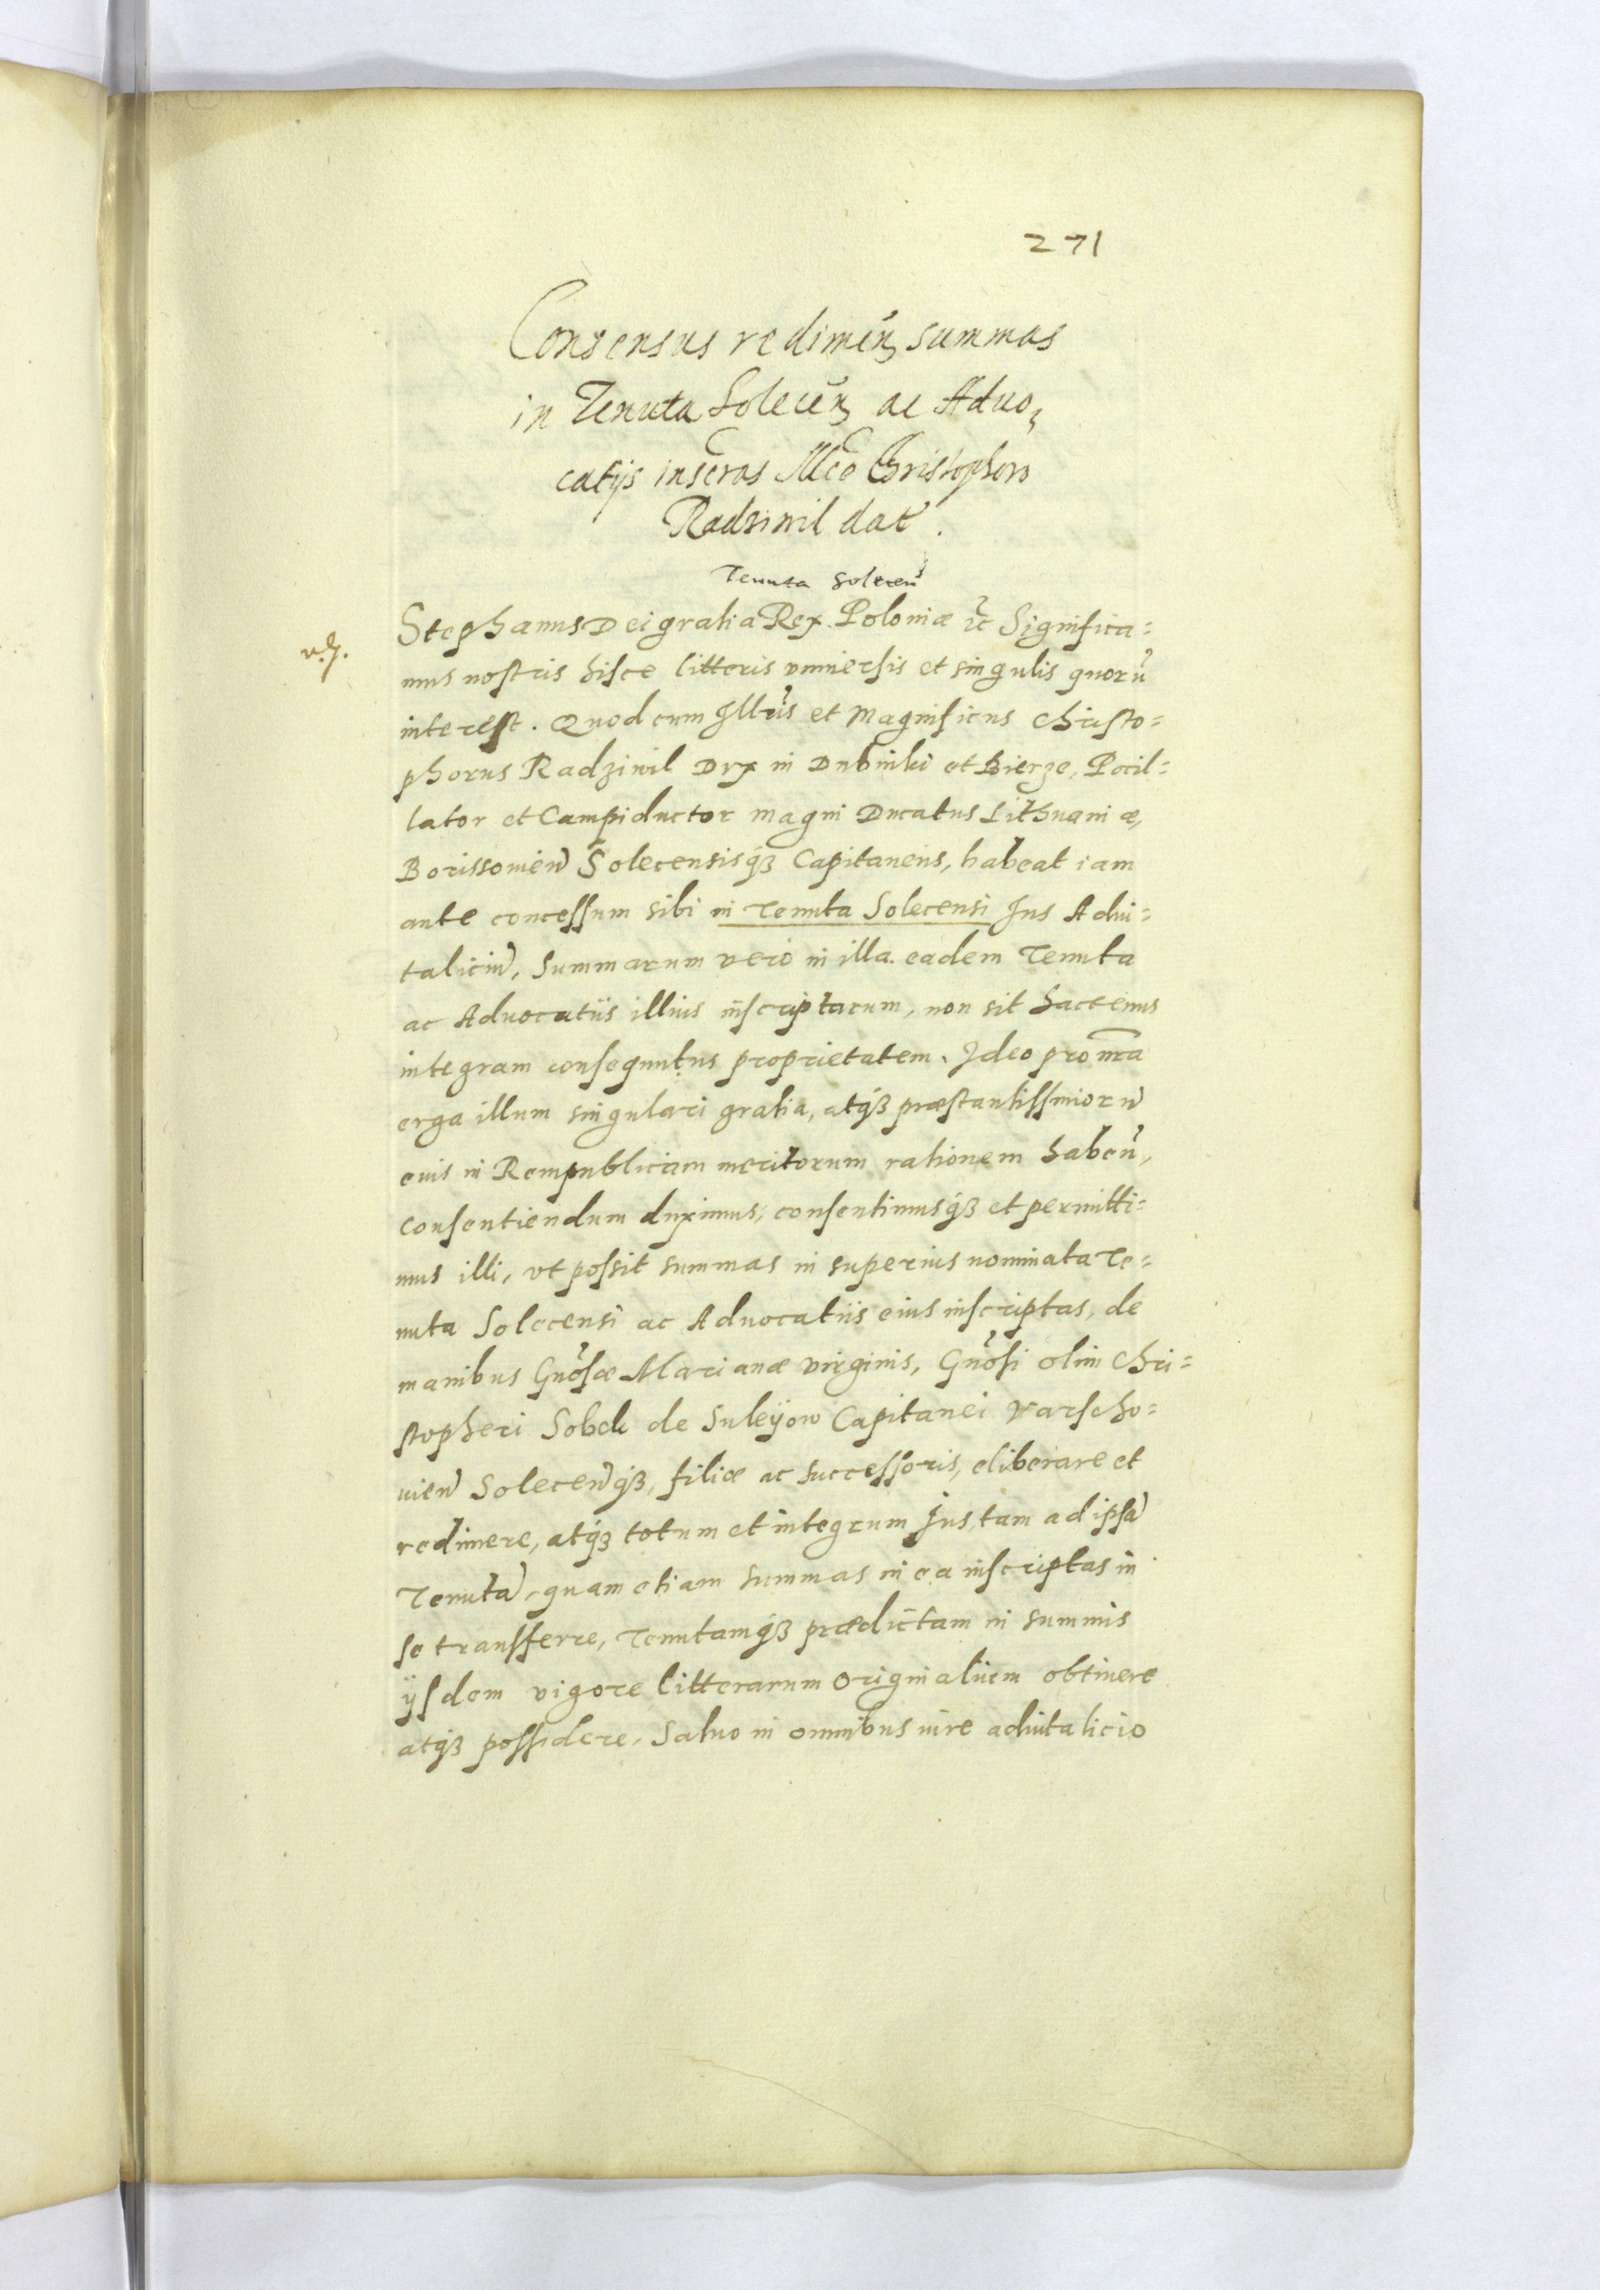 271
Consensus redimen̄ summas
in Tenuta Solecen̄ ac Aduo⸗
catijs inscr̄as Mco Christophoro
Radziwil dat̄.
Tenuta Solecen̄
Stephanus Dei gratia Rex Poloniæ ꝛc̄ Significa=
mus nostris hisce litteris vniuersis et singulis quorū
interest. Quod cum Illrīs et Magnificus Christo=
phorus Radziwil Dux in Dubinki et Bierze, Pocil=
lator et Campiductor Magni Ducatus Lithuaniæ,
Borissouien̄ Solecensisqꝫ Capitaneus, habeat iam
ante concessum sibi in Tenuta Solecensi Jus Adui=
taliciū, Summarum vero in illa eadem Tenuta
ac Aduocatiis illius inscriptarum, non sit hactenus
integram consequutus proprietatem. Ideo pro nr̄a
erga illum singulari gratia, atqꝫ præstantissimiorū
eius in Rempublicam meritorum rationem haben̄,
consentiendum duximus, consentimusqꝫ et permitti=
mus illi, vt possit summas in superius nominata Te=
nuta Solecensi ac Aduocatiis eius inscriptas, de
manibus Gn̄osæ Marianæ virginis, Gn̄osi olim Chri=
stopheri Sobek de Suleyow Capitanei Varscho=
uien̄ Solecen̄qꝫ, filiæ ac successoris, eliberare et
redimere, atqꝫ totum et integrum Jus, tam ad ipsā
Tenutā, quam etiam summas in ea inscriptas in
se transferre, Tenutamqꝫ prædictam in summis
ijsdem vigore litterarum originalium obtinere
atqꝫ possidere, Saluo in omnibus iure aduitalicio